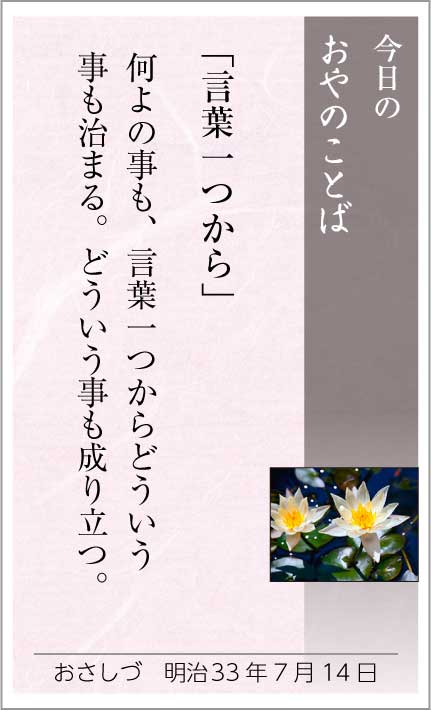 今日の
おやのことば
「言葉一つから」
何よの事も、言葉一つからどういう
事も治まる。どういう事も成り立つ。
おさしづ　明治33年7月14日